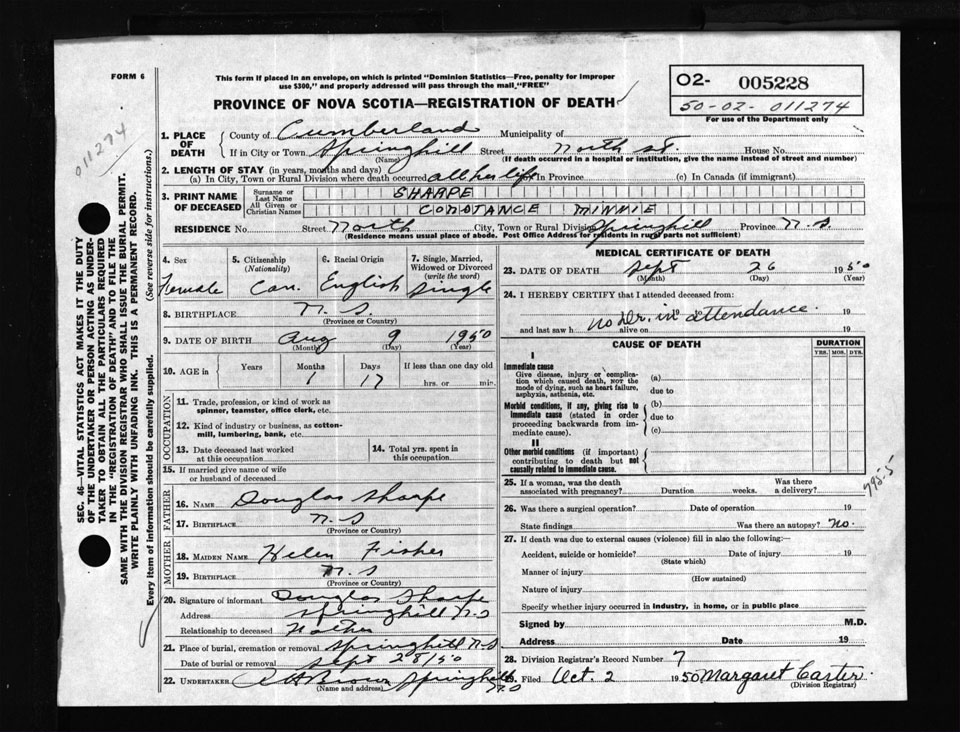 FORM 6
This form if placed in an envelope, on which is printed "Dominion Statistics—Free, penalty for improper
use $300," and properly addressed will pass through the mail "FREE"
O2- 005228
50-02-011274
For use of the Department only
PROVINCE OF NOVA SCOTIA—REGISTRATION OF DEATH
011274
1. PLACE OF DEATH
County of Cumberland Municipality of
If in City or Town Springhill Street North St. House No.
(Name) (If death occurred in a hospital or institution, give the name instead of street and number)
2. LENGTH OF STAY (in years, months and days)
(a) In City, Town or Rural Division where death occurred all her life (b) In Province (c) In Canada (if immigrant)
3. PRINT NAME OF DECEASED
Surname or Last Name SHARPE
All Given or Christian Names CONSTANCE MINNIE
RESIDENCE No. Street North City, Town or Rural Division Springhill Province N.S
(Residence means usual place of abode. Post Office Address for residents in rural parts not sufficient)
4. Sex 5. Citizenship (Nationality) 6. Racial Origin 7. Single, Married, Widowed or Divorced (write the word)
Female Can. English Single
8. BIRTHPLACE N. S.
(Province or Country)
9. DATE OF BIRTH Aug 9 1950
(Month) (Day) (Year)
10. AGE in Years Months Days If less than one day old
1 17 hrs. or min.
OCCUPATION
11. Trade, profession, or kind of work as spinner, teamster, office clerk, etc.
12. Kind of industry or business, as cotton-mill, lumbering, bank, etc.
13. Date deceased last worked at this occupation
14. Total yrs. spent in this occupation
15. If married give name of wife or husband of deceased
FATHER
16. NAME Douglas Sharpe
17. BIRTHPLACE N.S
(Province or Country)
MOTHER
18. MAIDEN NAME Helen Fisher
19. BIRTHPLACE N.S
(Province or Country)
20. Signature of informant Douglas Sharpe
Address Springhill N.S
Relationship to deceased Father
21. Place of burial, cremation or removal Springhill N.S
Date of burial or removal Sept 28/50
22. UNDERTAKER Brown Springhill
(Name and address) N.S
MEDICAL CERTIFICATE OF DEATH
23. DATE OF DEATH Sept 26 1950
(Month) (Day) (Year)
24. I HEREBY CERTIFY that I attended deceased from:
19
no Dr. in attendance.
and last saw h alive on 19
CAUSE OF DEATH
DURATION
YRS. MOS. DYS.
I
Immediate cause
Give disease, injury or complication which caused death, NOT the mode of dying, such as heart failure, asphyxia, asthenia, etc.
(a)
due to
Morbid conditions, if any, giving rise to immediate cause (stated in order proceeding backwards from immediate cause).
(b)
due to
(c)
II
Other morbid conditions (if important) contributing to death but not causally related to immediate cause.
795-5
25. If a woman, was the death associated with pregnancy? Duration weeks. Was there a delivery?
26. Was there a surgical operation? Date of operation 19
State findings Was there an autopsy? No.
27. If death was due to external causes (violence) fill in also the following:—
Accident, suicide or homicide? Date of injury 19
(State which)
Manner of injury
(How sustained)
Nature of injury
Specify whether injury occurred in industry, in home, or in public place
Signed by M.D.
Address Date 19
28. Division Registrar's Record Number 7
29. Filed Oct. 2 1950 Margaret Carter.
(Division Registrar)
SEC. 46—VITAL STATISTICS ACT MAKES IT THE DUTY
OF THE UNDERTAKER OR PERSON ACTING AS UNDER-
TAKER TO OBTAIN ALL THE PARTICULARS REQUIRED
IN THE "REGISTRATION OF DEATH" AND TO FILE THE
SAME WITH THE DIVISION REGISTRAR WHO SHALL ISSUE THE BURIAL PERMIT.
WRITE PLAINLY WITH UNFADING INK. THIS IS A PERMANENT RECORD.
Every item of information should be carefully supplied. (See reverse side for instructions.)